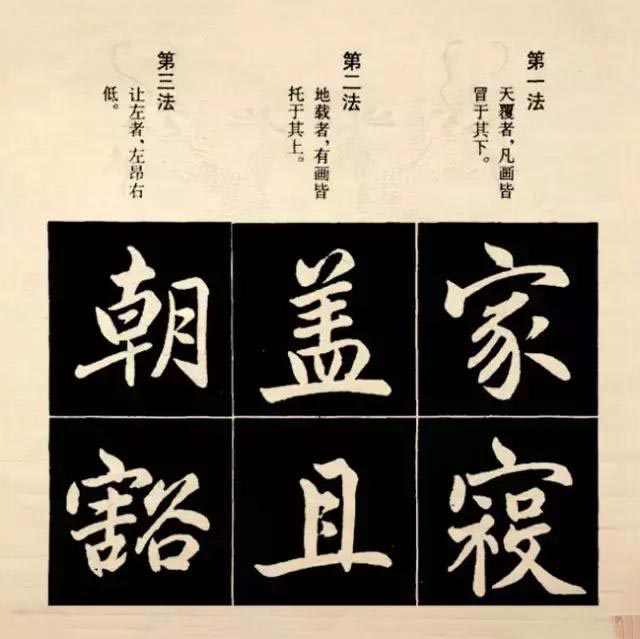 第一法
天覆者，凡画皆
冒于其下。
家
第二法
地载者，有画皆
托于其上。
盖
且
第三法
让左者，左昂右
低。
朝
豁